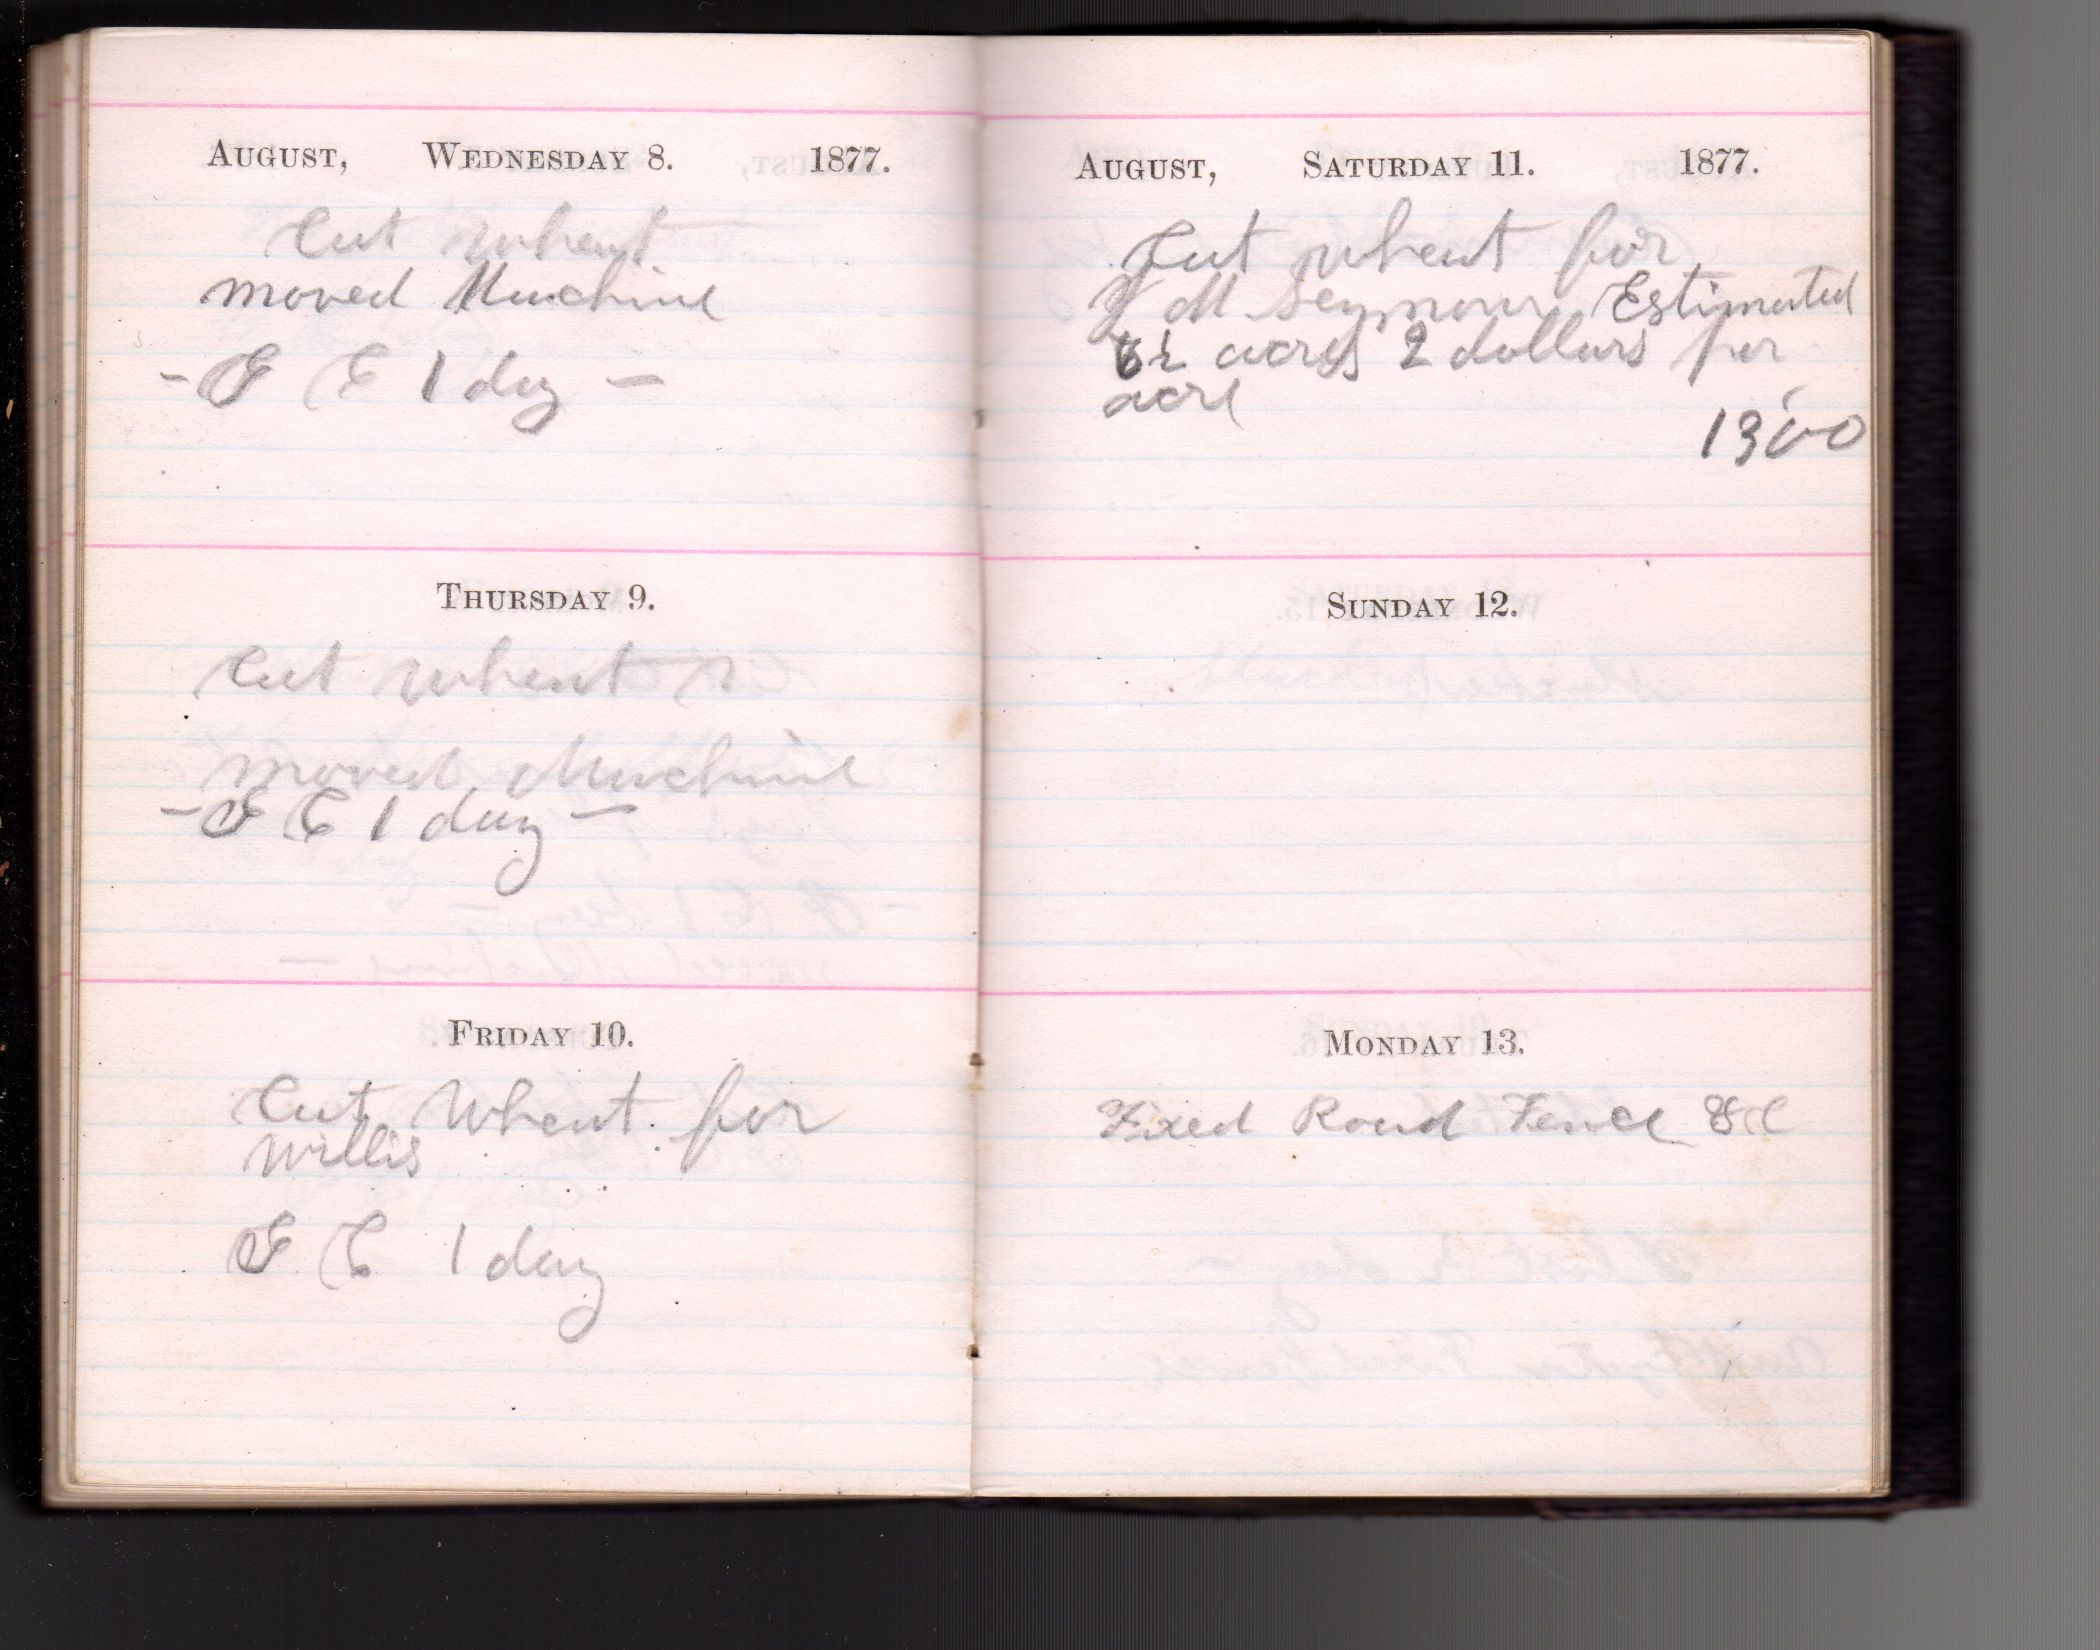 AUGUST, WEDNESDAY 8. 1877.
Cut wheat
moved Machine
- E 1 day -
THURSDAY 9.
Cut wheat
moved Machine
- E 1 day -
FRIDAY 10.
Cut Wheat for
Willis
E 1 day
AUGUST, SATURDAY 11. 1877.
Cut wheat for
M Seymour Estimated
acres 2 dollars per
acre
1300
SUNDAY 12.
MONDAY 13.
Fixed Road Fence &c